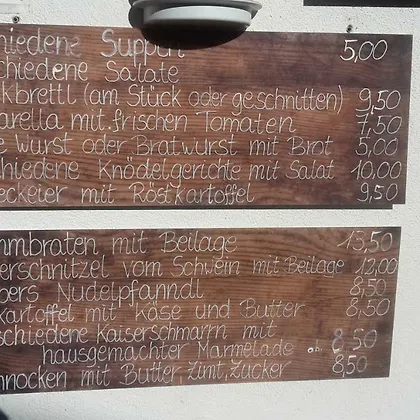 hiedene Suppen 5,00
chiedene Salate
kbrettl (am Stück oder geschnitten) 9,50
arella mit frischen Tomaten 7,50
e Wurst oder Bratwurst mit Brot 5,00
hiedene Knödelgerichte mit Salat 10,00
eckeier mit Röstkartoffel 9,50
mmbraten mit Beilage 13,50
erschnitzel vom Schwein mit Beilage 12,00
bers Nudelpfanndl 8,50
kartoffel mit Käse und Butter 8,50
schiedene Kaiserschmarrn mit
hausgemachter Marmelade ab 8,50
nnocken mit Butter, Zimt, Zucker 8,50